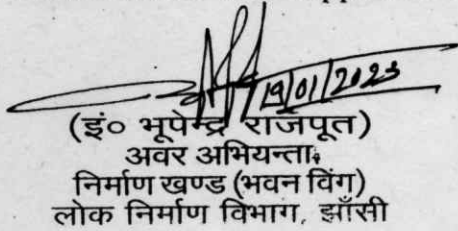 19/01/2023
(इं० भूपेन्द्र राजपूत)
अवर अभियन्ता,
निर्माण खण्ड (भवन विंग)
लोक निर्माण विभाग, झाँसी